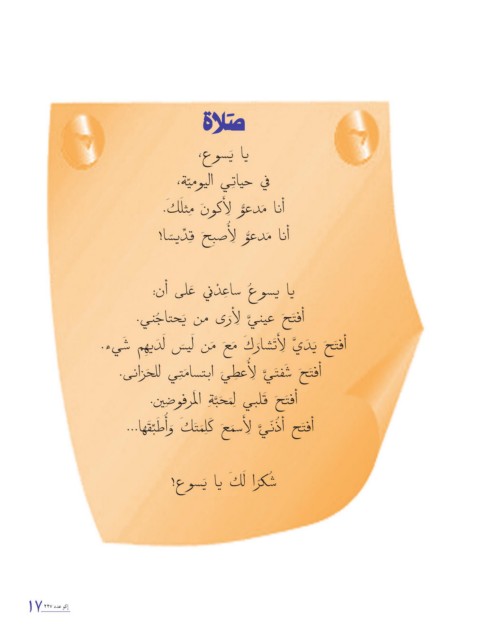 صَلاة
يا يَسوع،
في حياتي اليوميّة،
أنا مَدعوٌّ لِأكونَ مِثلَكَ.
أنا مَدعوٌّ لِأُصبِحَ قِدّيسًا!
يا يسوعُ ساعِدْني عَلى أن:
أفتَحَ عينيَّ لِأرى من يَحتاجُني.
أفتَحَ يَدَيَّ لِأتَشارَكَ مَعَ مَن لَيسَ لَدَيهِم شَيء.
أفتَحَ شَفتَيَّ لِأُعطيَ ابتسامَتي للحَزانى.
أفتَحَ قَلبي لِمحبّة المرفوضين.
أفتَح أُذُنَيَّ لِأسمَعَ كَلِمتَكَ وَأُطَبّقَها...
شُكرًا لَكَ يا يَسوع!
١٧